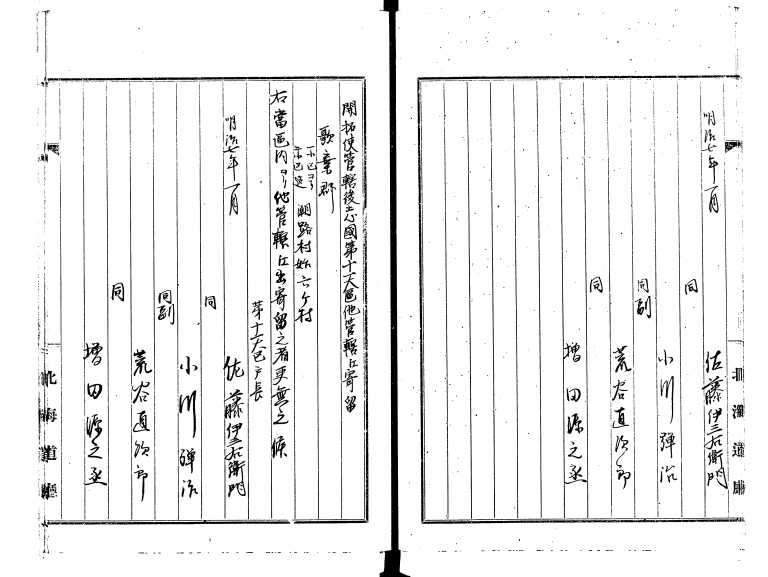 明治七年一月
佐藤伊三右衛門
同
小川弾治
同副
荒谷直次郎
同
増田源之丞
北海道廳
開拓使管轄後志国第十一大區他管轄江寄留
歌棄郡
潮路村始六ケ村
右當區内ヨリ他管轄江出寄留之者更無之候
明治七年一月
第十一大区戸長
佐藤伊三右衛門
同
小川弾治
同副
荒谷直次郎
同
増田源之丞
北海道廳